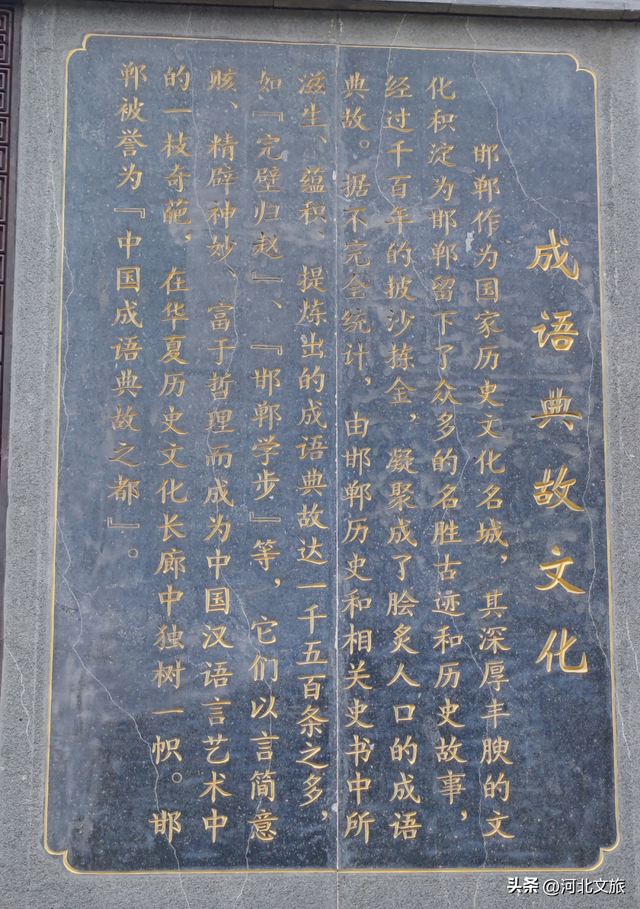 成语典故文化
邯郸作为国家历史文化名城，其深厚丰腴的文
化积淀为邯郸留下了众多的名胜古迹和历史故事，
经过千百年的披沙拣金，凝聚成了脍炙人口的成语
典故。据不完全统计，由邯郸历史和相关史书中所
滋生、蕴积、提炼出的成语典故达一千五百条之多，
如『完璧归赵』、『邯郸学步』等，它们以言简意
赅、精辟神妙、富于哲理而成为中国汉语言艺术中
的一枝奇葩，在华夏历史文化长廊中独树一帜。邯
郸被誉为『中国成语典故之都』。
头条 @河北文旅